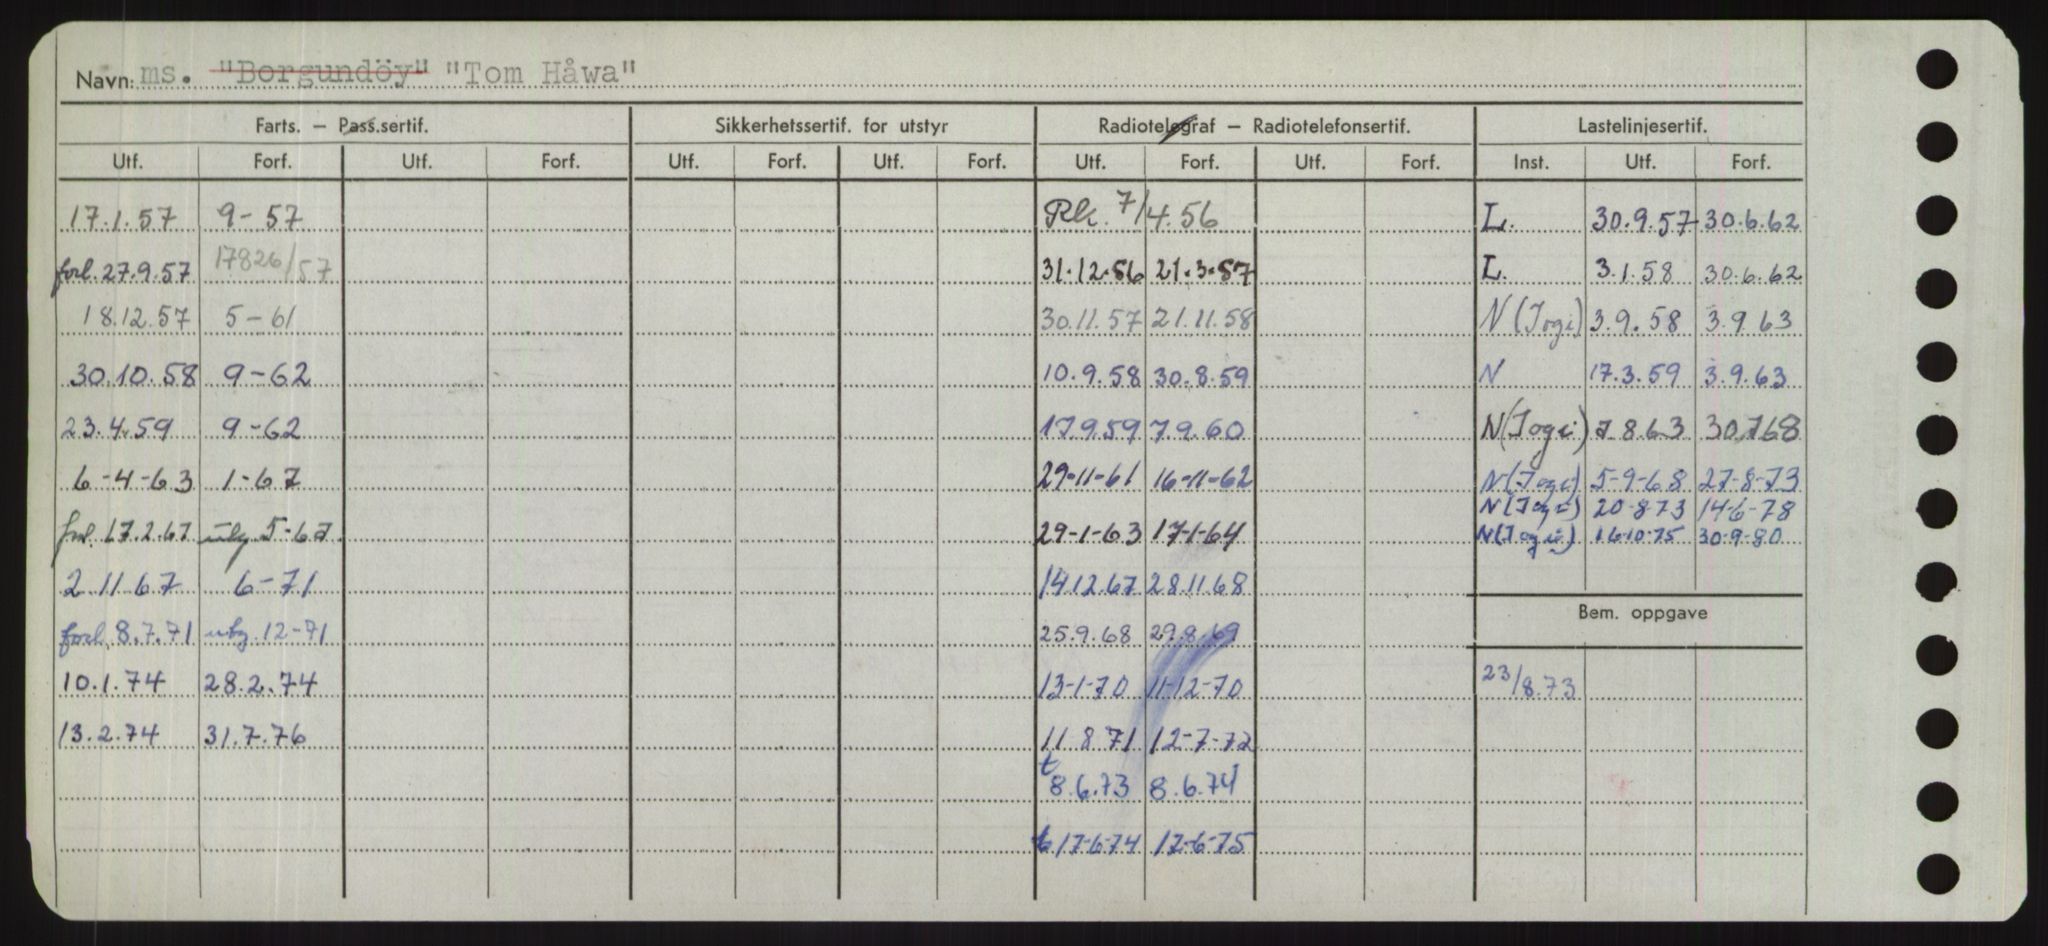 Navn: ms. "Borgundöy" "Tom Håwa"
Farts. – Pass.sertif. Sikkerhetssertif. for utstyr Radiotelegraf – Radiotelefonsertif. Lastelinjesertif.
Utf. Forf. Utf. Forf. Utf. Forf. Utf. Forf. Utf. Forf. Utf. Forf. Inst. Utf. Forf.
17.1.57 9-57 Rk. 7/4.56 L. 30.9.57 30.6.62
forl. 27.9.57 17826/57 31.12.56 21.3.57 L. 3.1.58 30.6.62
18.12.57 5-61 30.11.57 21.11.58 N (Jogi) 3.9.58 3.9.63
30.10.58 9-62 10.9.58 30.8.59 N 17.3.59 3.9.63
23.4.59 9-62 17.9.59 7.9.60 N(Jogi) 7.8.63 30.7.68
6-4-63 1-67 29-11-61 16-11-62 N(Jogi) 5-9-68 27-8-73
N(Jogi) 20-8-73 14-6-78
forl. 17.2.67 utg 5-67 29-1-63 17-1-64 N(Jogi) 16-10-75 30-9-80
2.11.67 6-71 14.12.67 28.11.68
Bem. oppgave
forl. 8.7.71 utg. 12-71 25.9.68 29.8.69
10.1.74 28.2.74 13-1-70 11-12-70 23/8.73
13.2.74 31.7.76 11-8-71 12-7-72
t 8.6.73 8.6.74
t 17-6-74 17-6-75